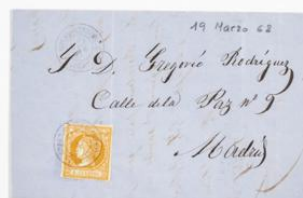 19 Marzo 62
S. D. Gregorio Rodriguez
Calle de la Paz nº 9
Madrid